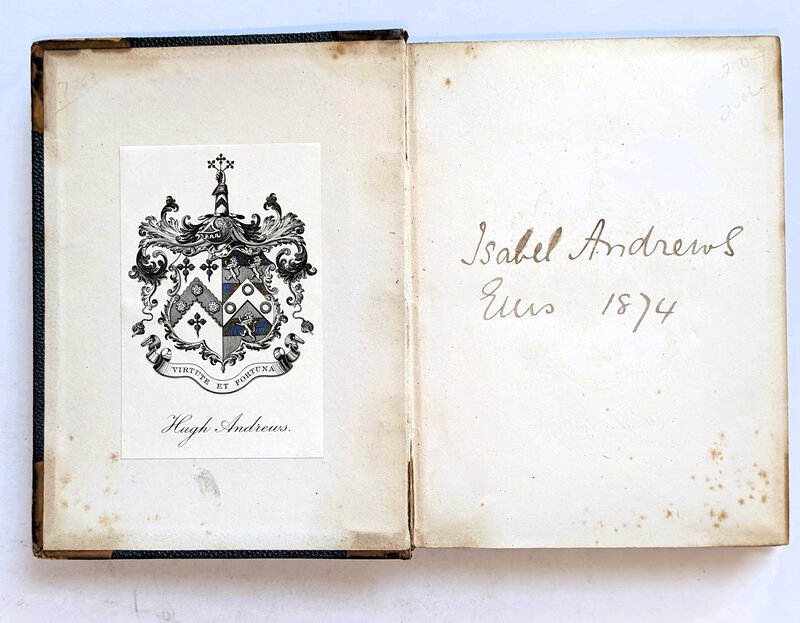 VIRTUTE ET FORTUNA
Hugh Andrews.
Isabel Andrews
Ems 1874